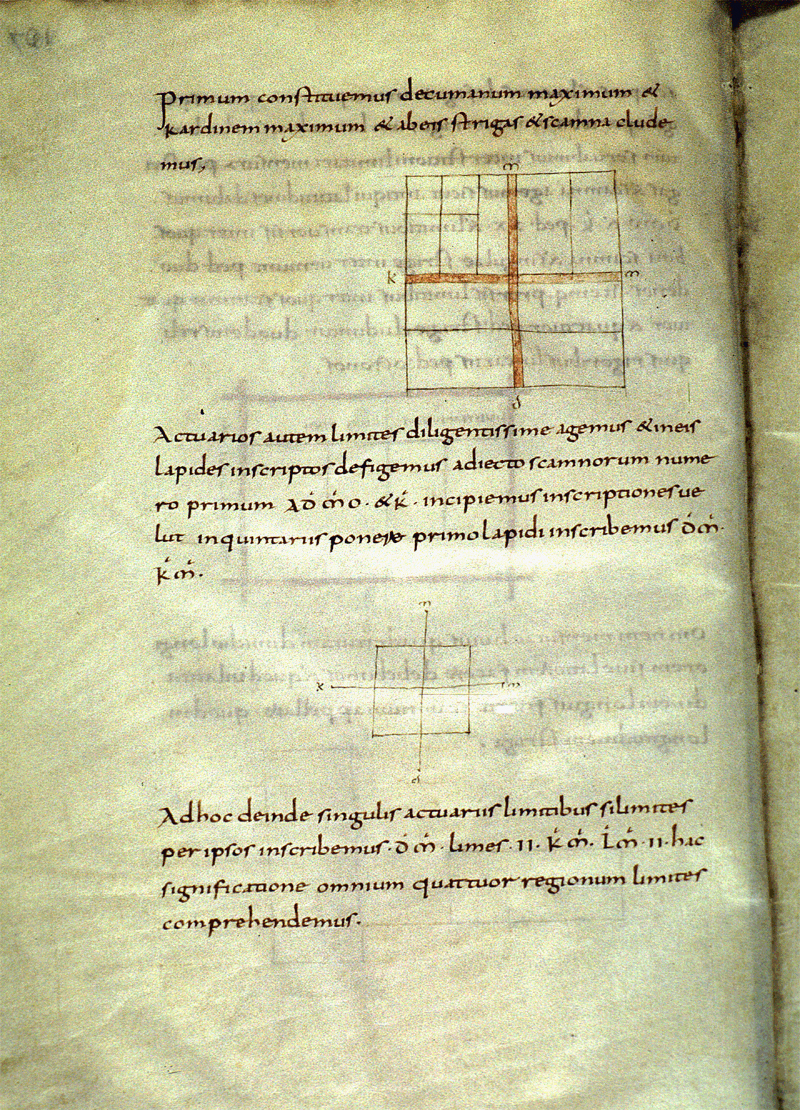 Primum constituemus decumanum maximum &
kardinem maximum & abeis strigas & scamna clude
mus,
m
k
m
d
Actuarios autem limites diligentissime agemus & ineis
lapides inscriptos defigemus adiecto scamnorum nume
ro primum ad d̄ m̄ o · & k̄ · incipiemus inscriptiones ue
lut in quintariis ponere primo lapidi inscribemus d̄ m̄ ·
k̄ m̄ ·
m
k
m
d
Adhoc deinde singulis actuariis limitibus silimites
per ipsos inscribemus · d̄ m̄ · limes · II · k̄ m̄ · L̄ m̄ · II · hac
significatione omnium quattuor regionum limites
comprehendemus ·